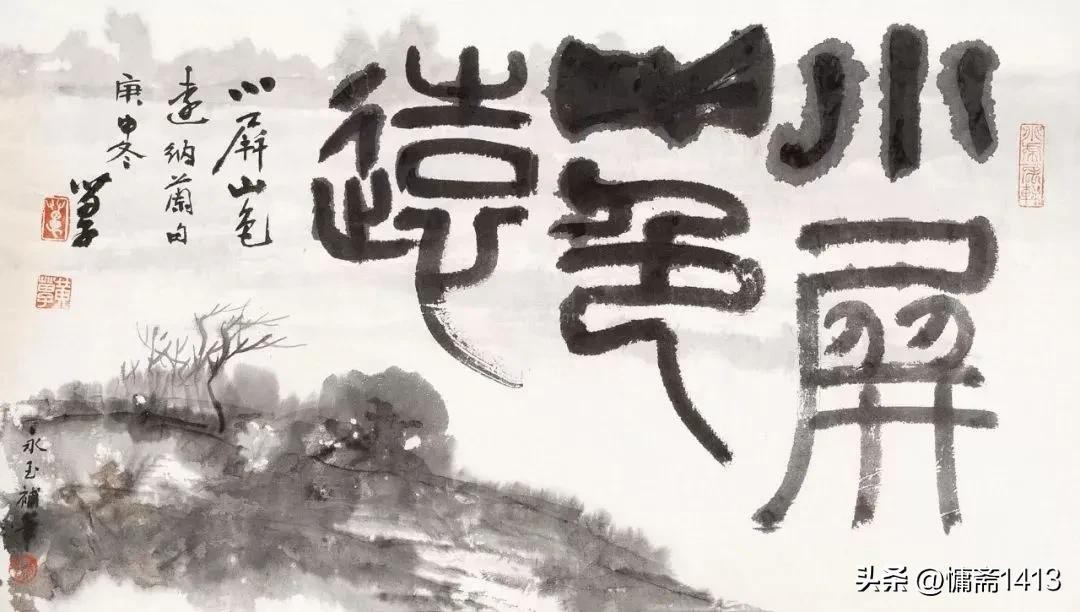 小屏
山色
遠
小屏山色
遠納蘭句
庚申冬
苗子
永玉補筆
头条 @慵斋1413